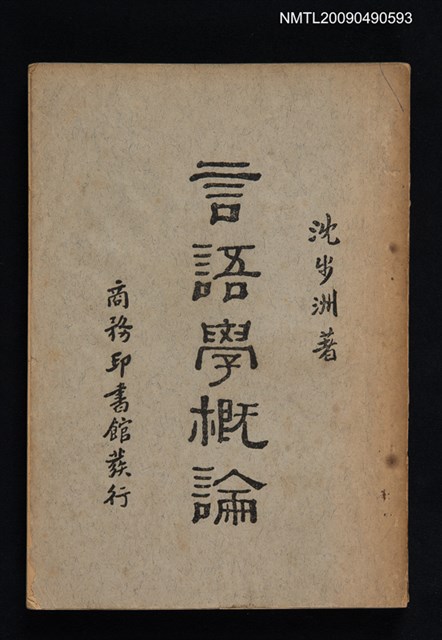 NMTL20090490593
沈步洲著
言語學概論
商務印書館發行